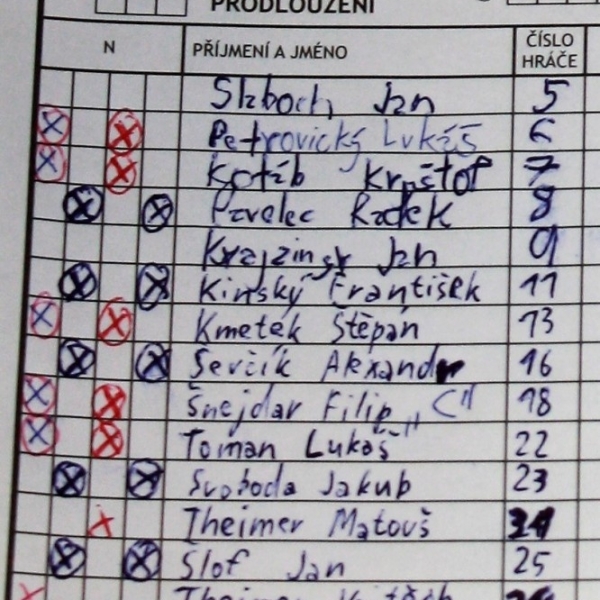 PRODLOUŽENÍ
N PŘÍJMENÍ A JMÉNO ČÍSLO HRÁČE
Slaboch Jan 5
Petrovický Lukáš 6
Kotáb Kryštof 7
Pavelec Radek 8
Krajzingr Jan 9
Kinský František 11
Kmetek Štěpán 13
Ševčík Alexandr 16
Šnejdar Filip "C" 18
Toman Lukáš 22
Svoboda Jakub 23
Theimer Matouš 24
Šlof Jan 25
Theimer